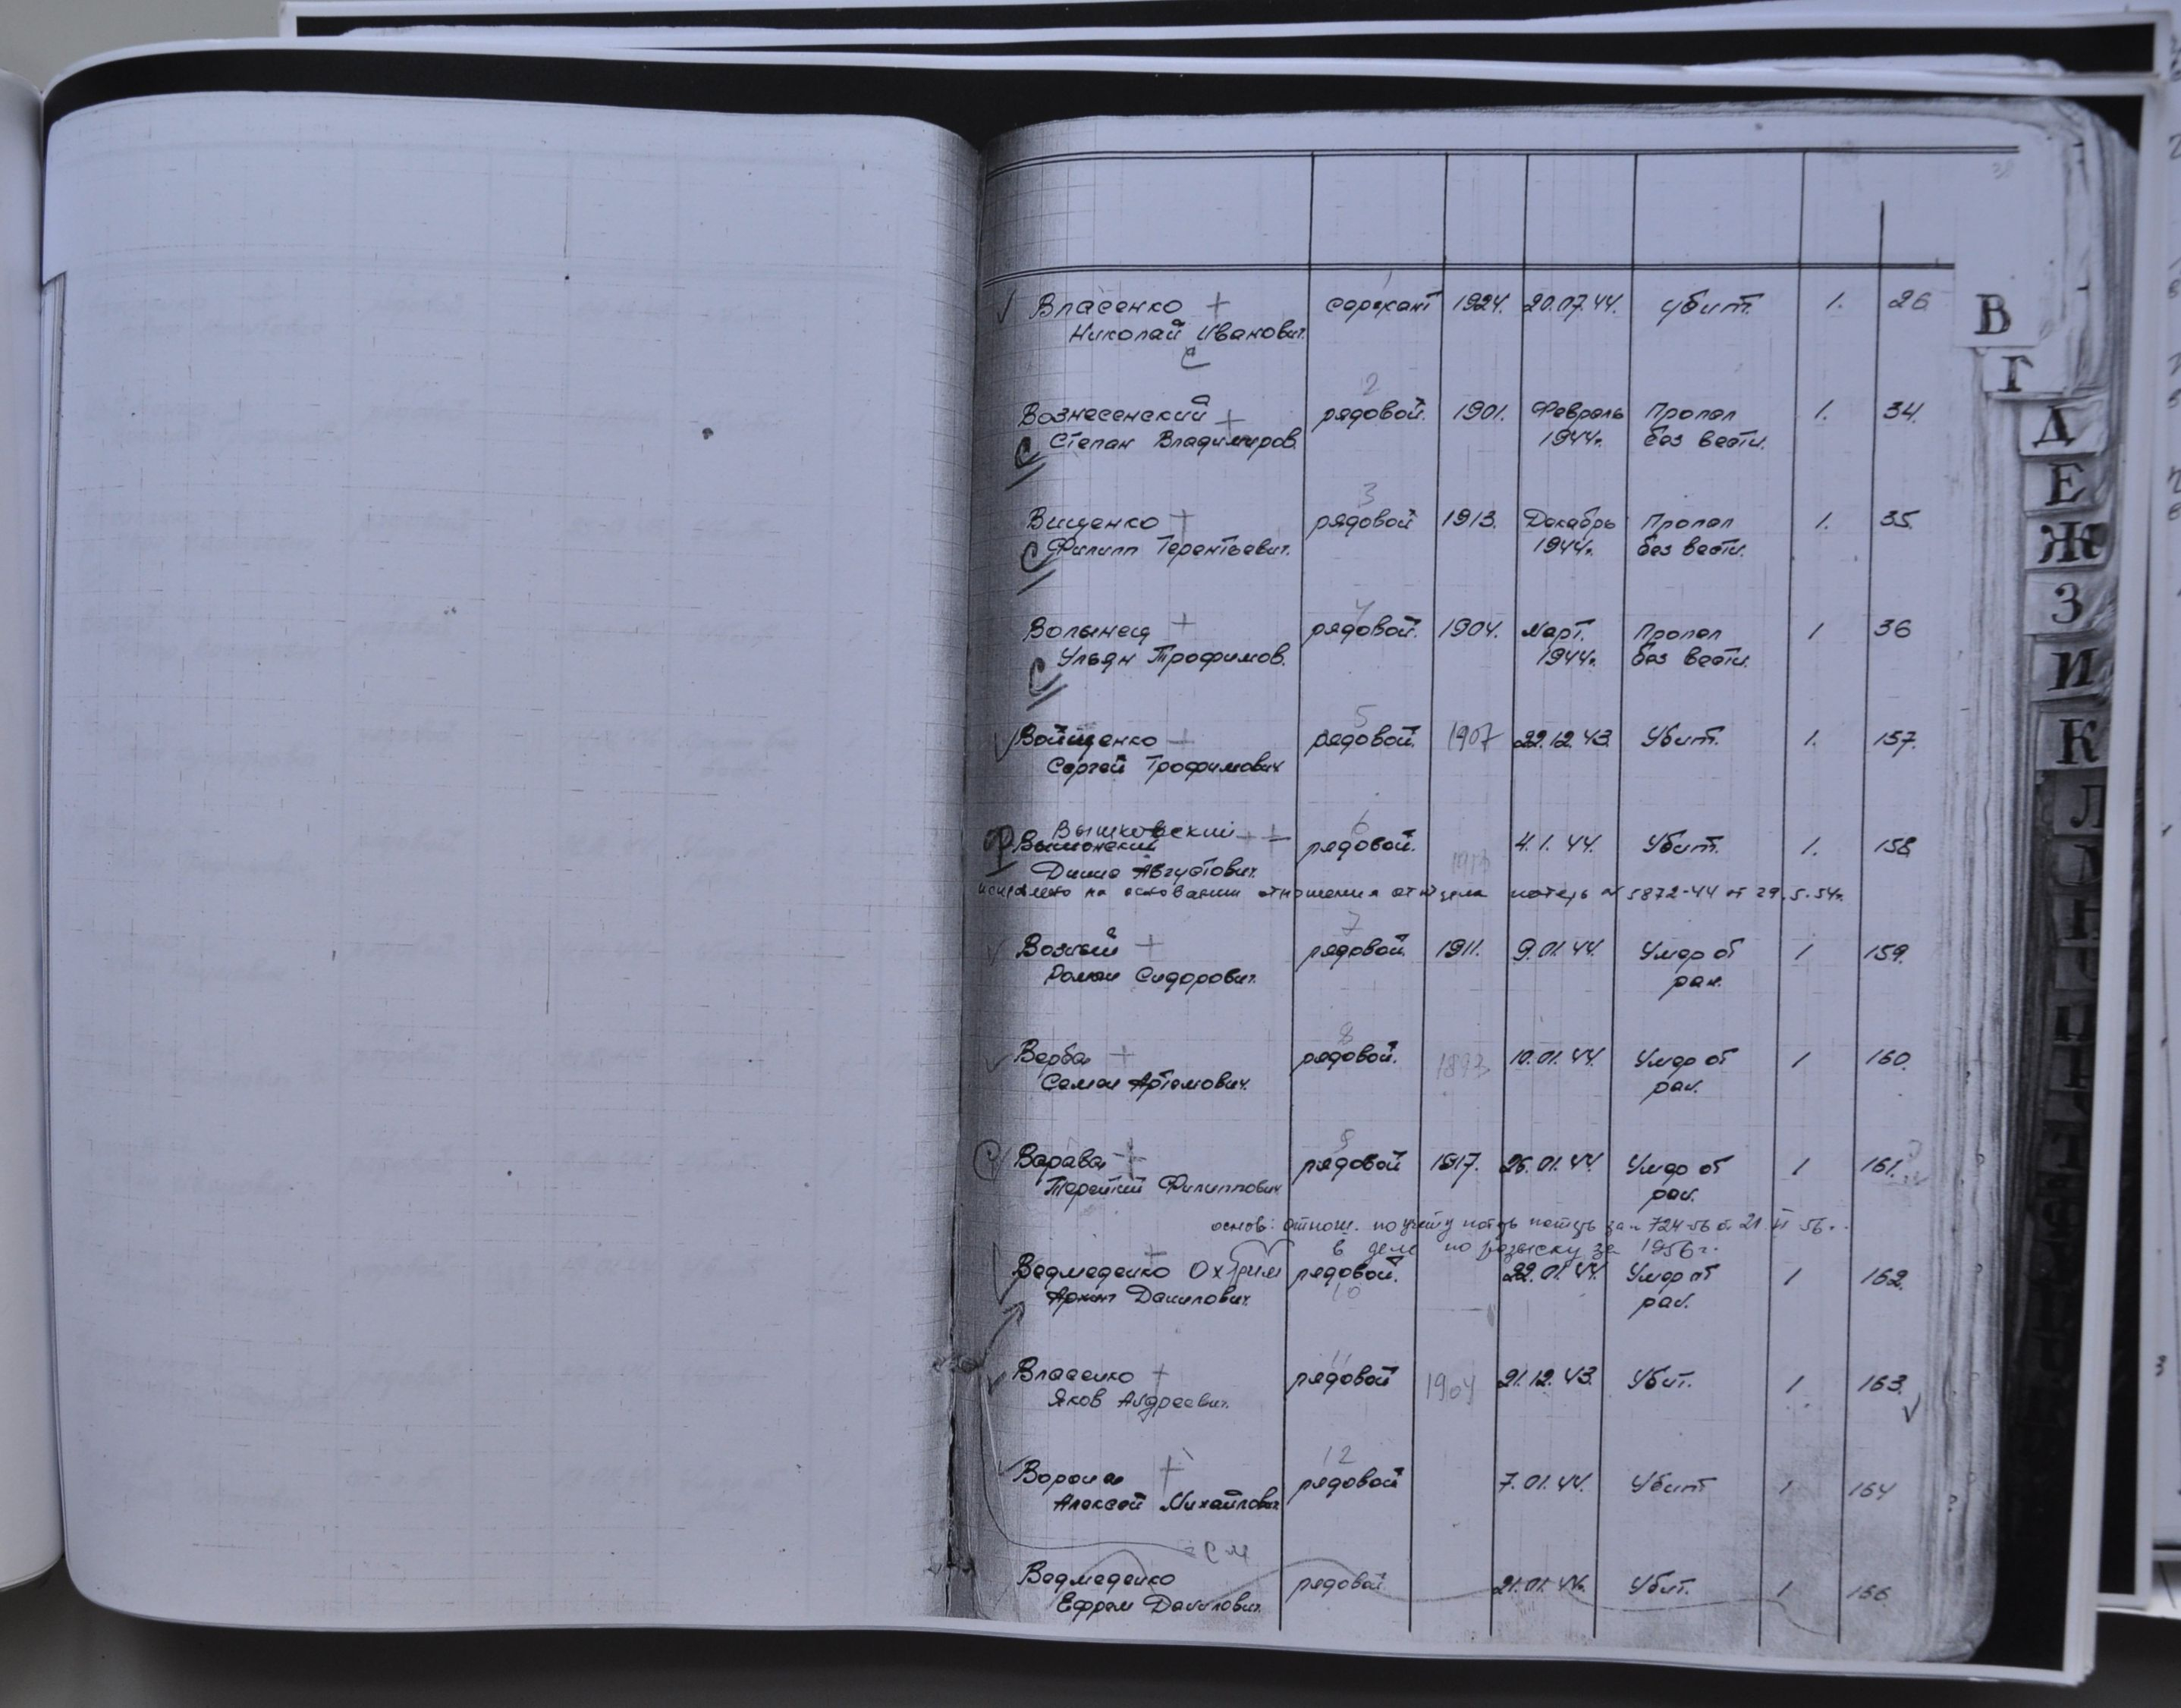 Власенко + сержант 1924. 20.07.44. убит. 1. 26
Николай Иванович.
С
2
Вознесенский + рядовой. 1901. Февраль Пропал 1. 34.
С Степан Владимиров. 1944г. без вести.
3
Вищенко + рядовой 1913. Декабрь Пропал 1. 35.
С Филипп Терентьевич. 1944г. без вести.
4
Волынец + рядовой. 1904. Март. Пропал 1 36
С Ульян Трофимов. 1944г. без вести.
5
Войщенко + рядовой. 1907 22.12.43. Убит. 1. 157.
Сергей Трофимович
6
Вышковский ++
рядовой. 4.1.44. Убит. 1. 158
Августович. 1913
на основании отношения отдела потерь № 5872-44 от 29.5.54г.
7
Возный + рядовой. 1911. 9.01.44. Умер от 1 159.
Роман Сидорович. ран.
8
Верба + рядовой. 1893 10.01.44. Умер от 1 160.
Семен Артемович. ран.
9
Варава + рядовой 1917. 26.01.44. Умер от 1 161.
Терентий Филиппович ран.
основ: отнош. по учету потерь за № 724-56 от 21 56
в деле по розыску за 1956г.
Ведмеденко Охрим рядовой. 22.01.44. Умер от 1 162.
Данилович. 10 ран.
11
Власенко + рядовой 1904 21.12.43. Убит. 1 163.
Яков Андреевич.
12
Воронин + рядовой 7.01.44. Убит 1 164
Алексей Михайлович
Ведмеденко рядовой 21.01.44. Убит. 1 166
Ефрем Данилович.
В
Г
Д
Е
Ж
З
И
К
Л